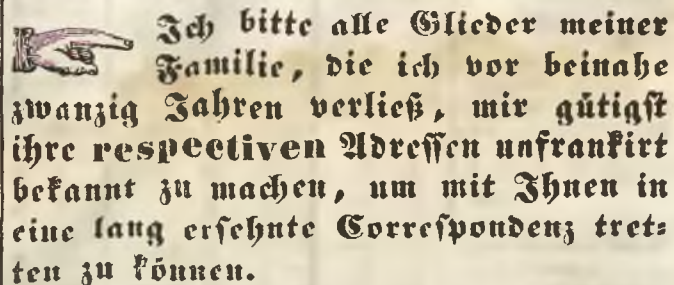 Ich bitte alle Glieder meiner
Familie, die ich vor beinahe
zwanzig Jahren verließ, mir gütigst
ihre respectiven Adressen unfrankirt
bekannt zu machen, um mit Ihnen in
eine lang ersehnte Correspondenz tret=
ten zu können.